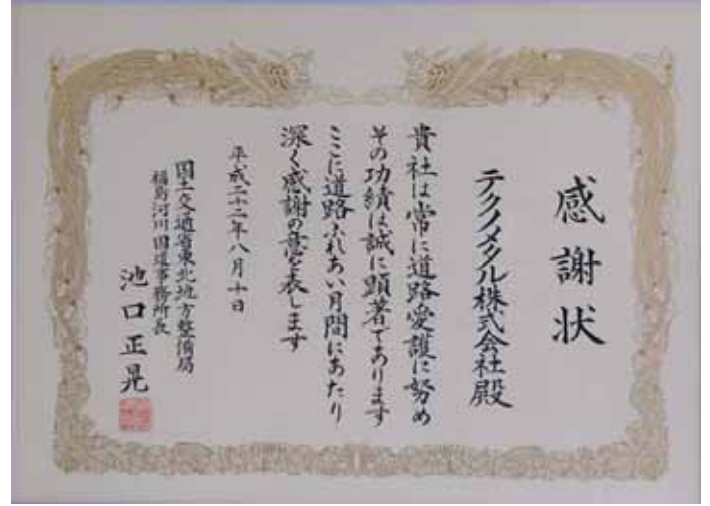 感謝状
テクノメタル株式会社殿
貴社は常に道路愛護に努め
その功績は誠に顕著であります
ここに道路ふれあい月間にあたり
深く感謝の意を表します
平成二十二年八月十日
国土交通省東北地方整備局
福島河川国道事務所長
池口正晃